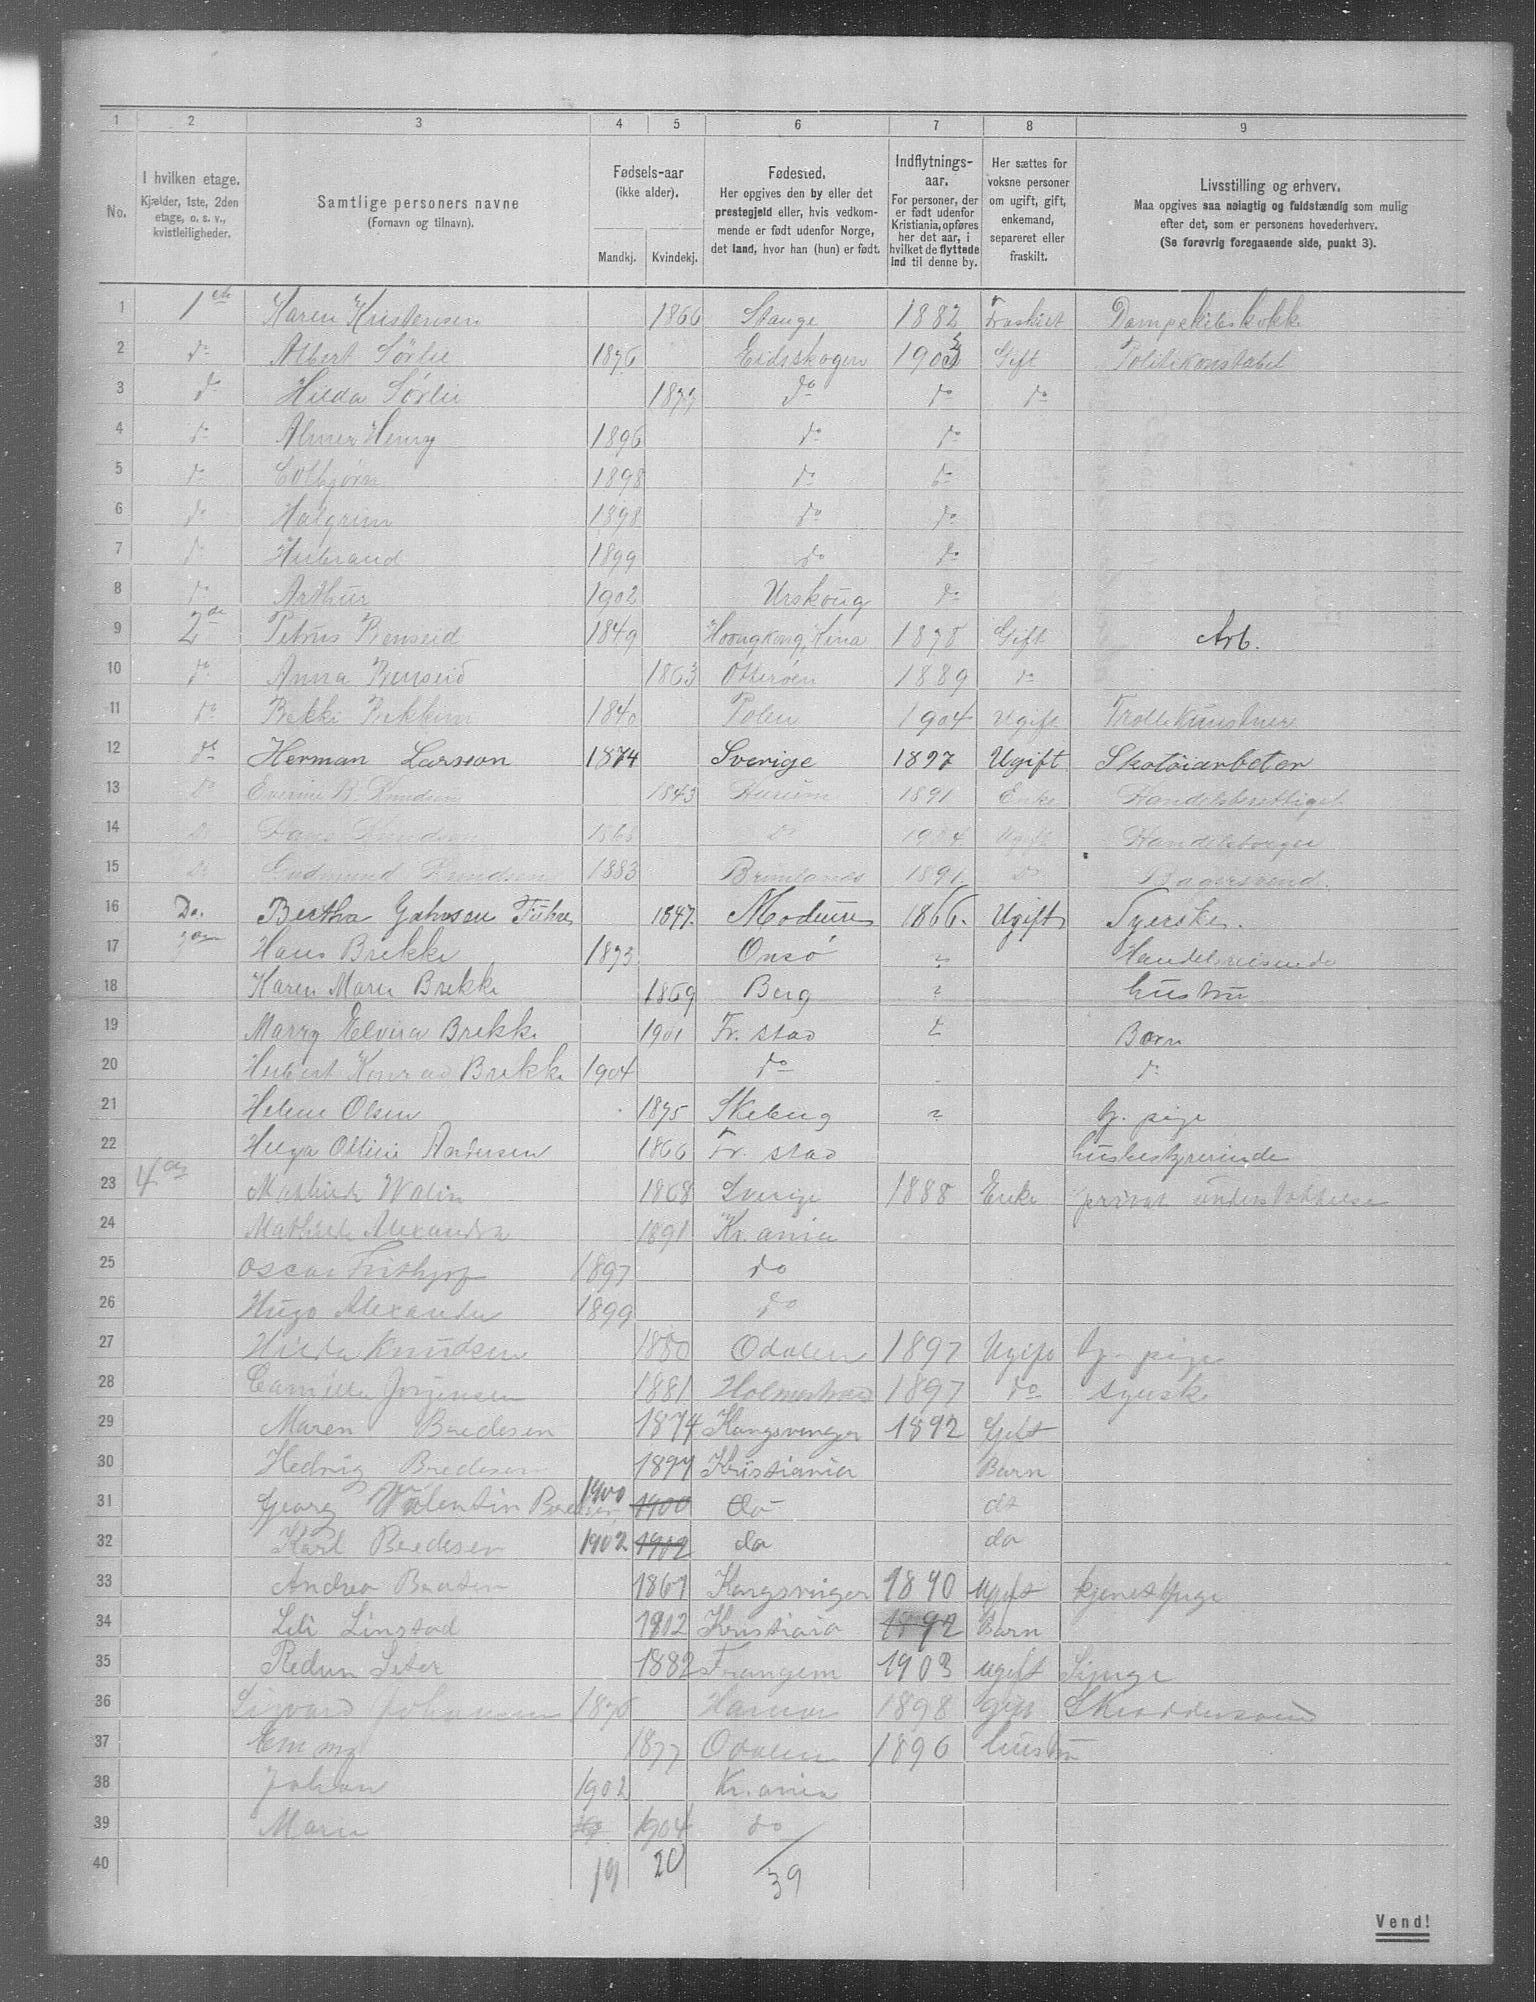 1 2 3 4 5 6 7 8 9
No.
I hvilken etage.
Kjælder, 1ste, 2den
etage, o. s. v.,
kvistleiligheder.
Samtlige personers navne
(Fornavn og tilnavn).
Fødsels-aar
(ikke alder).
Mandkj. Kvindekj.
Fødested.
Her opgives den by eller det
prestegjeld eller, hvis vedkom-
mende er født udenfor Norge,
det land, hvor han (hun) er født.
Indflytnings-
aar.
For personer, der
er født udenfor
Kristiania, opføres
her det aar, i
hvilket de flyttede
ind til denne by.
Her sættes for
voksne personer
om ugift, gift,
enkemand,
separeret eller
fraskilt.
Livsstilling og erhverv.
Maa opgives saa nøiagtig og fuldstændig som mulig
efter det, som er personens hovederhverv.
(Se forøvrig foregaaende side, punkt 3).
1 1 Karen Kristensen 1866 Stange 1882 Fraskilt Dampskibskokke
2 do Albert Sørlie 1876 Eidsskogen Gift Politikonstabel
3 do Hilda Sørlie 1877 do do do
4 do Henry 1896 do do
5 do 1898 do do
6 do Halgrim 1898 do do
7 do Herbrand 1899 do do
8 do Arthur 1902 Urskoug do
9 2de Petrus Benseid 1849 Hoongkong, Kina 1878 Gift Arb.
10 do Anna Benseid 1863 Otterøen 1889 do
11 do Bekki 1840 Polen 1904 Ugift Trollekunstner
12 do Herman Larsson 1874 Sverige 1897 Ugift Skotøiarbeter
13 Do Knudsen 1843 1891 Enke Handelsberettiget
14 Do Hans Knudsen Do Ugift Handelsborger
15 Do Gudmund Knudsen 1883 Brunlanes 1891 Do Bagersvend.
16 Do. Bertha 1847. Modum 1866. Ugift Syerske.
17 Hans Brekke 1873 Onsø ? Handelsreisende
18 Karen Marie Brekke 1869 Berg ? hustru
19 Marry Elvira Brekke 1901 Fr. stad Barn
20 Herbert Konrad Brekke 1904 do do
21 Helene Olsen 1875 Skeberg ? tj. pige
22 Helga Ottilie Andersen 1866 Fr. stad husbestyrerinde
23 4 Mathilde Walin 1868 Sverige 1888 Enke privat understøttelse
24 Mathilde Alexandra 1891 Kr. ania
25 Oscar Frithjof 1897 do
26 Hugo Alexander 1899 do
27 Hilda Knudsen 1880 Odalen 1897 Ugift tj. pige
28 Camilla Jorgensen 1881 Holmestrand 1897 do syerske
29 Maren Bredesen 1874 Kongsvinger 1892 Gift
30 Hedvig Bredesen 1897 Kristiania Barn
31 Georg Valentin Bredesen 1900 1900 do do
32 Karl Bredesen 1902 1902 do do
33 Andrea Braaten Kongsvinger 1890 ugift tjenestpige
34 Lili Linstad Kristiania 1892 Barn
35 1882 1903 ugift
36 Sigvard Johansen 1876 Hamar 1898 Gift Skræddersvend
37 Emmy 1877 Odalen 1896 hustru
38 Johan 1902 Kr. ania
39 Marie 1904 do
40 19 20 39
Vend!